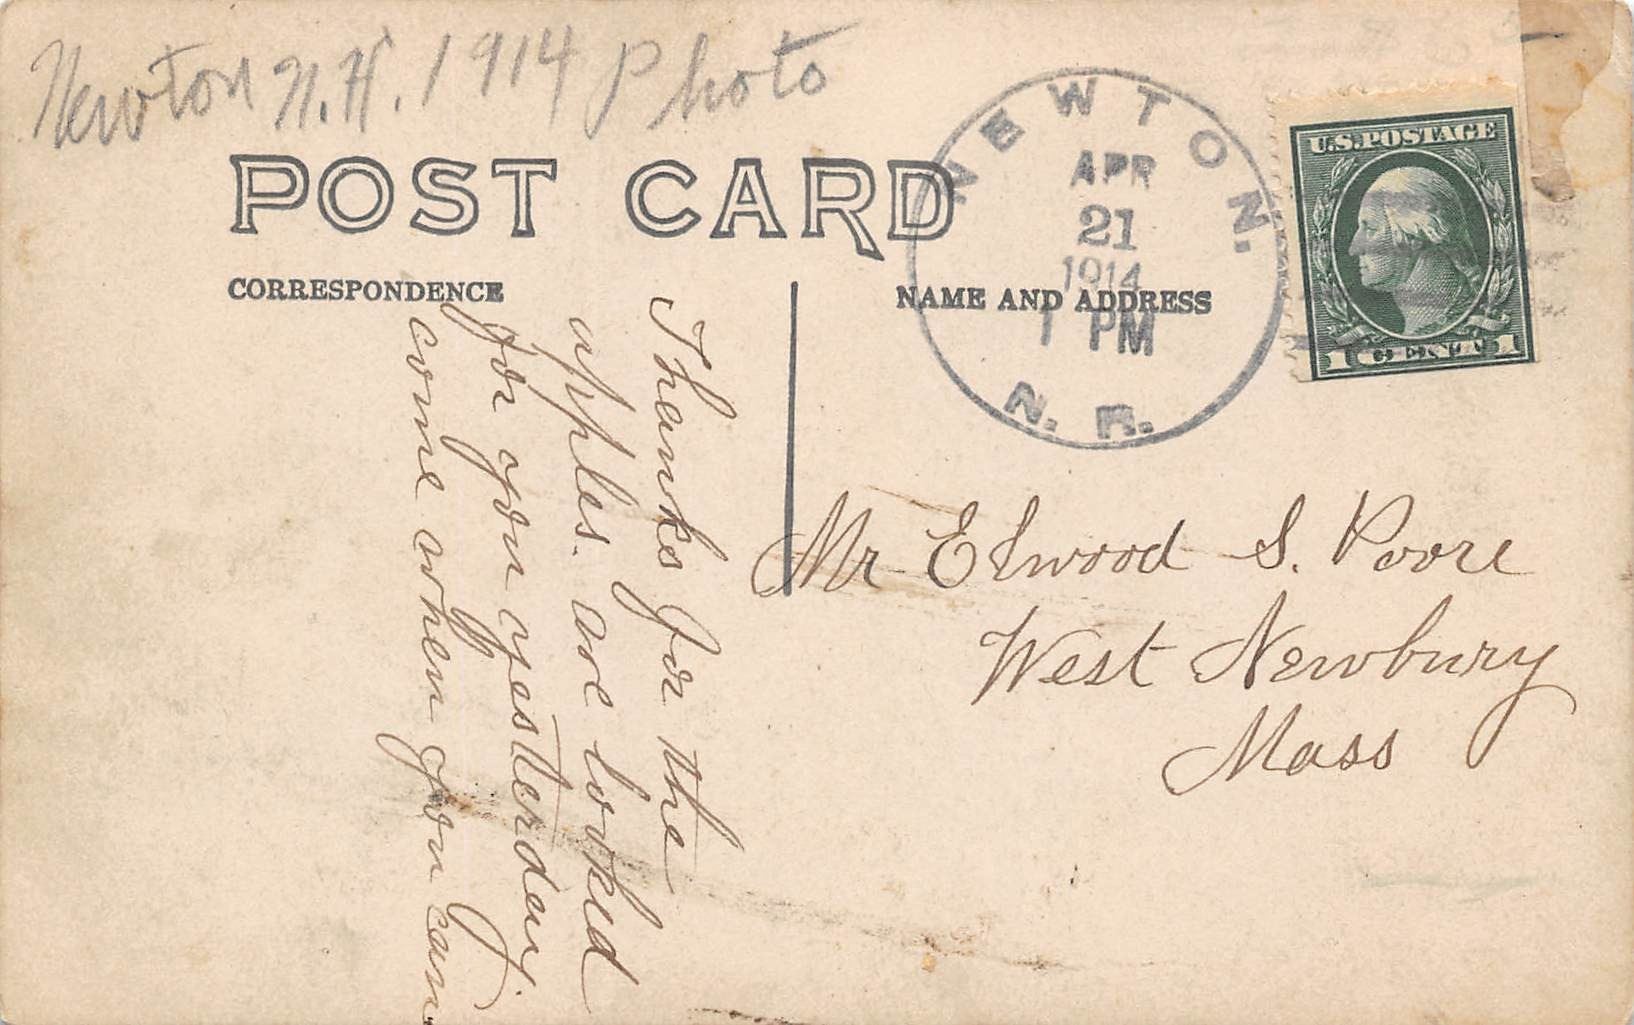 Newton N.H. 1914 Photo
POST CARD
CORRESPONDENCE
NAME AND ADDRESS
NEWTON.
APR
21
1914
1 PM
N. H.
U.S. POSTAGE
1 CENT 1
Thanks for the
apples. are looked
for you yesterday
come when you can
Mr Elwood S. Poore
West Newbury
Mass